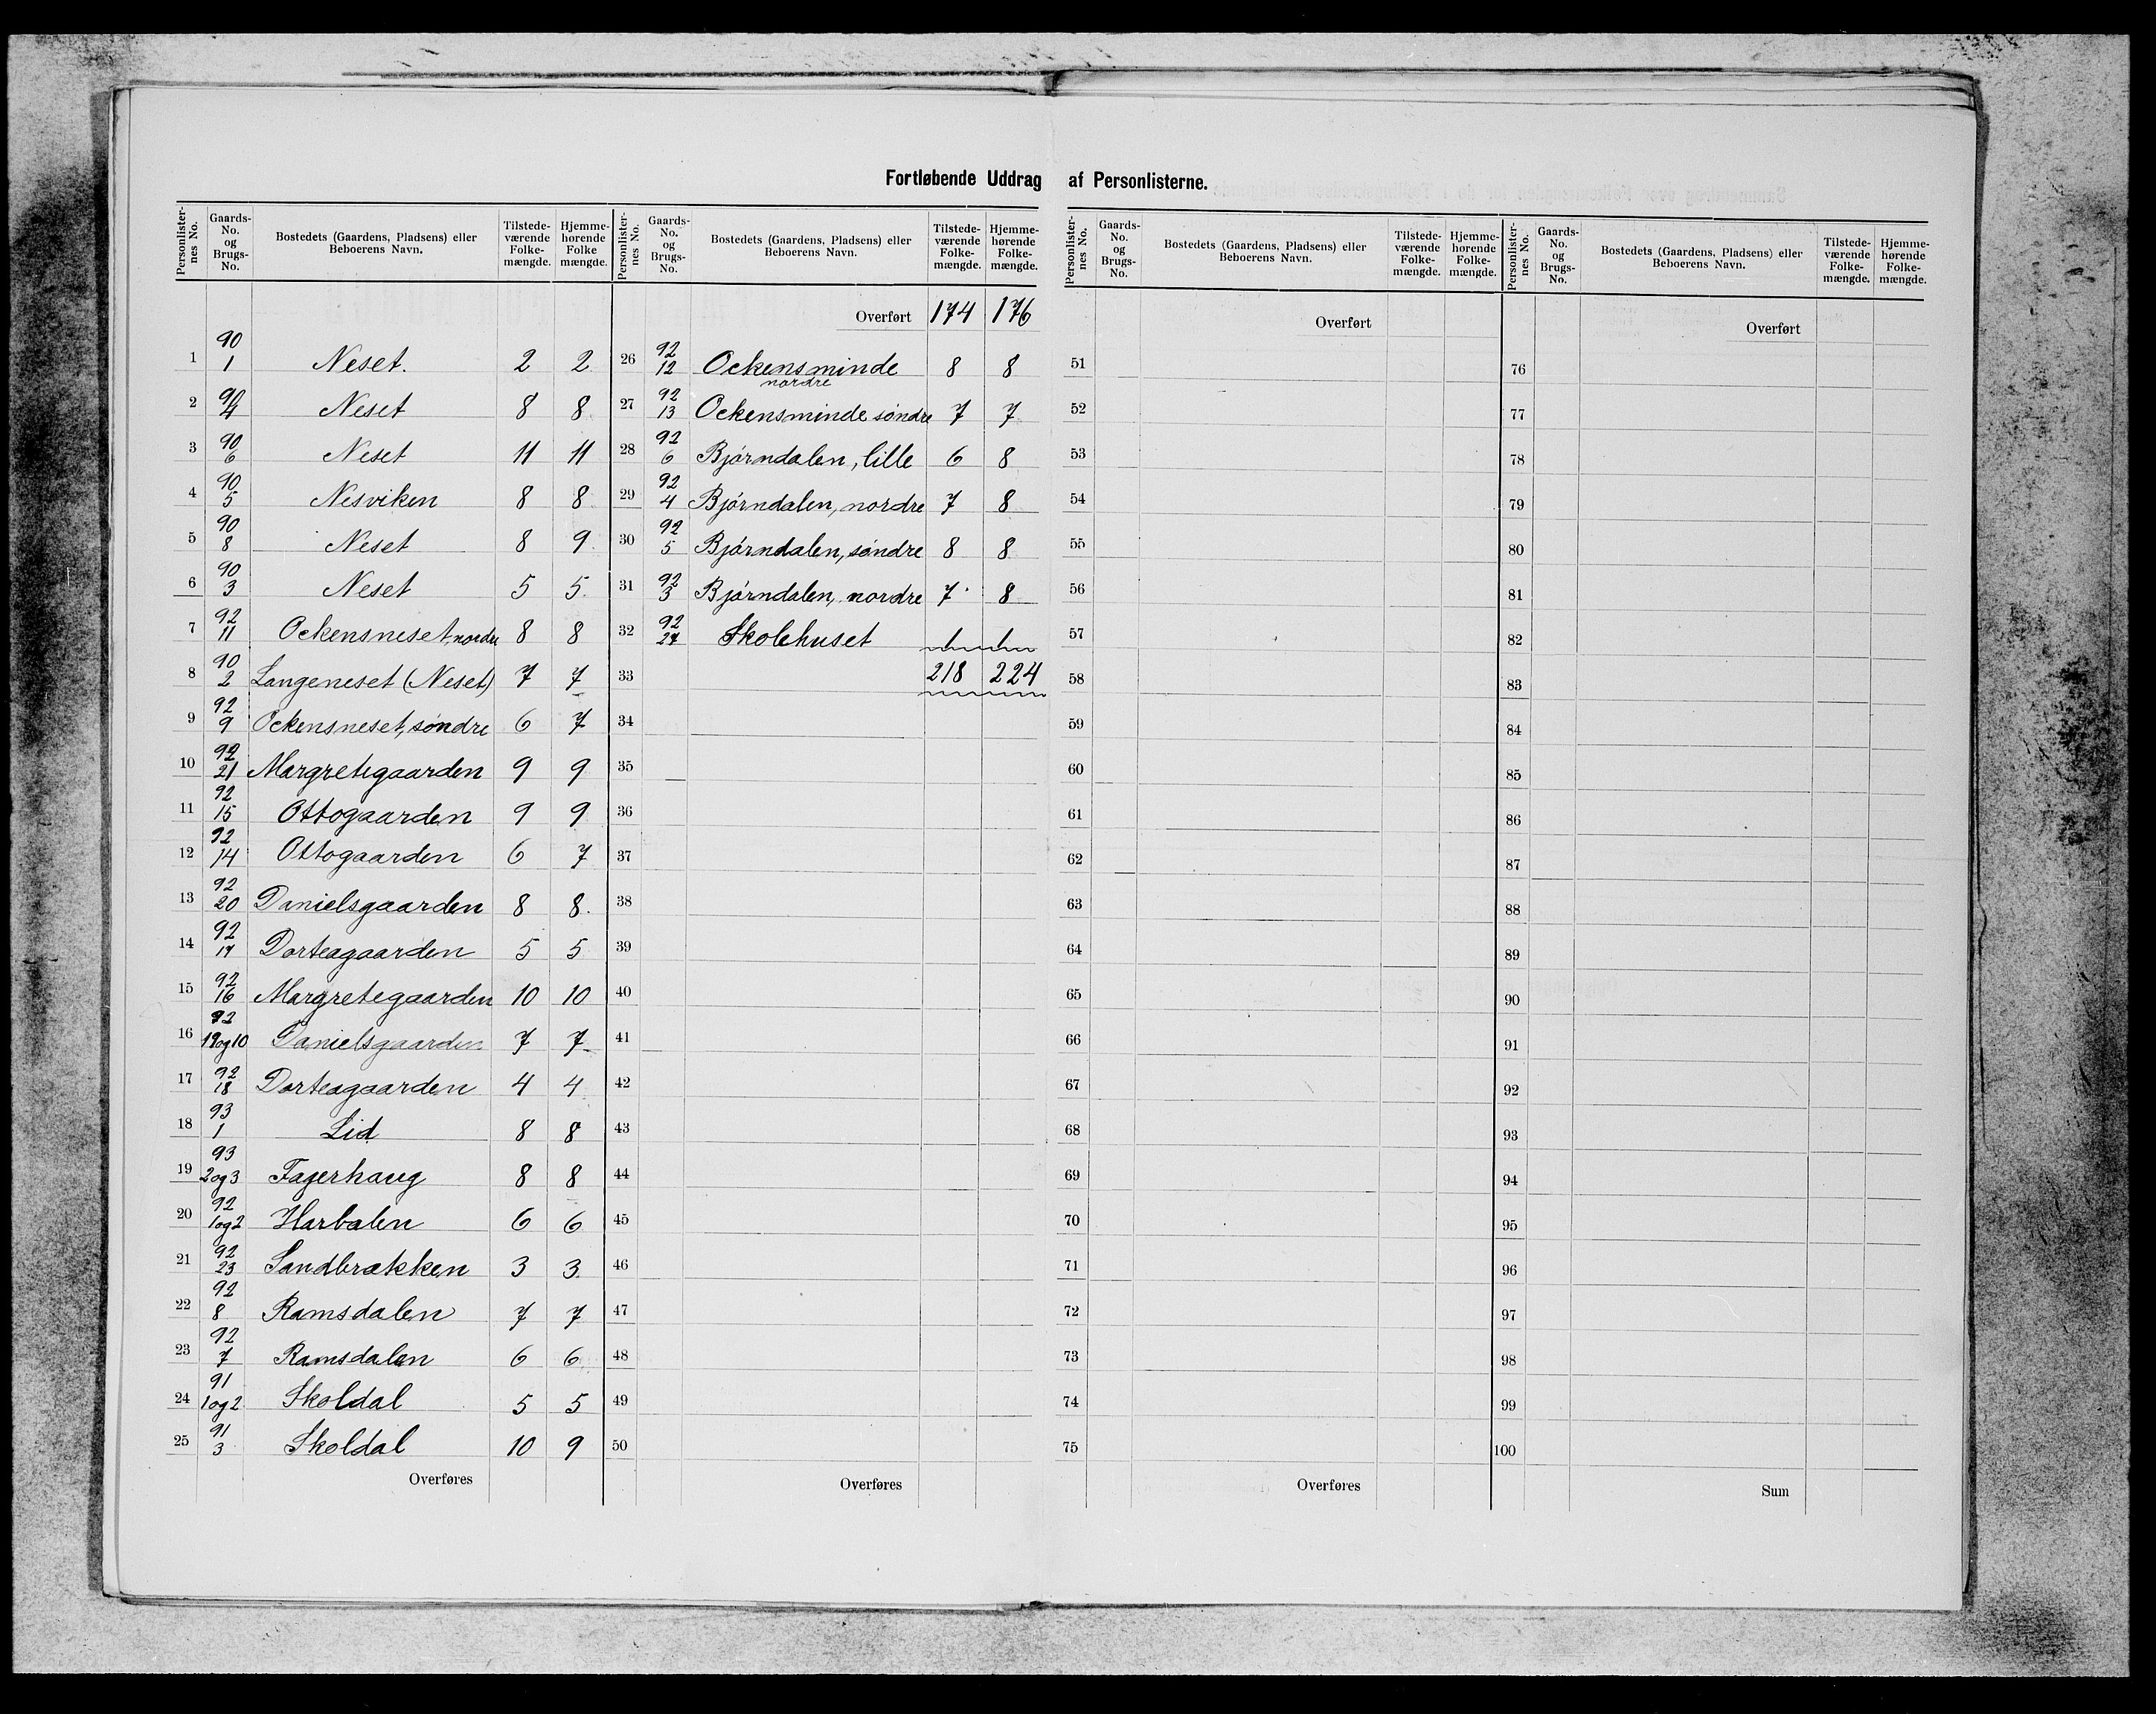 Fortløbende Uddrag af Personlisterne.
Personlisternes No. | Gaards-No. og Brugs-No. | Bostedets (Gaardens, Pladsens) eller Beboerens Navn. | Tilstedeværende Folkemængde. | Hjemmehørende Folke mængde.
1 | 90 1 | Neset. | 2 | 2
2 | 90 4 | Neset | 8 | 8
3 | 90 6 | Neset | 11 | 11
4 | 90 5 | Nesviken | 8 | 8
5 | 90 8 | Neset | 8 | 9
6 | 90 3 | Neset | 5 | 5
7 | 92 11 | Ockensneset, nordre | 8 | 8
8 | 90 2 | Langeneset (Neset) | 7 | 7
9 | 92 9 | Ockensneset, søndre | 6 | 7
10 | 92 21 | Margretegaarden | 9 | 9
11 | 92 15 | Ottogaarden | 9 | 9
12 | 92 14 | Ottogaarden | 6 | 7
13 | 92 20 | Danielsgaarden | 8 | 8.
14 | 92 17 | Dorteagaarden | 5 | 5
15 | 92 16 | Margretegaarden | 10 | 10
16 | 92 19og10 | Danielsgaarden | 7 | 7
17 | 92 18 | Dorteagaarden | 4 | 4
18 | 93 1 | Lid | 8 | 8
19 | 93 2og3 | Fagerhaug | 8 | 8
20 | 92 1og2 | Harbalen | 6 | 6
21 | 92 23 | Sandbrækken | 3 | 3
22 | 92 8 | Ramsdalen | 7 | 7
23 | 92 7 | Ramsdalen | 6 | 6
24 | 91 1og2 | Skoldal | 5 | 5
25 | 91 3 | Skoldal | 10 | 9
Overføres
Personlisternes No. | Gaards-No. og Brugs-No. | Bostedets (Gaardens, Pladsens) eller Beboerens Navn. | Tilstedeværende Folkemængde. | Hjemmehørende Folkemængde.
Overført | 174 | 176
26 | 92 12 | Ockensminde nordre | 8 | 8
27 | 92 13 | Ockensminde søndre | 7 | 7
28 | 92 6 | Bjørndalen, lille | 6 | 8
29 | 92 4 | Bjørndalen, nordre | 7 | 8
30 | 92 5 | Bjørndalen, søndre | 8 | 8
31 | 92 3 | Bjørndalen, nordre | 7 | 8
32 | 92 27 | Skolehuset
33 | 218 | 224
34
35
36
37
38
39
40
41
42
43
44
45
46
47
48
49
50
Overføres
Personlisternes No. | Gaards-No. og Brugs-No. | Bostedets (Gaardens, Pladsens) eller Beboerens Navn. | Tilstedeværende Folkemængde. | Hjemmehørende Folkemængde.
Overført
51
52
53
54
55
56
57
58
59
60
61
62
63
64
65
66
67
68
69
70
71
72
73
74
75
Overføres
Personlisternes No. | Gaards-No. og Brugs-No. | Bostedets (Gaardens, Pladsens) eller Beboerens Navn. | Tilstedeværende Folkemængde. | Hjemmehørende Folkemængde.
Overført
76
77
78
79
80
81
82
83
84
85
86
87
88
89
90
91
92
93
94
95
96
97
98
99
100
Sum